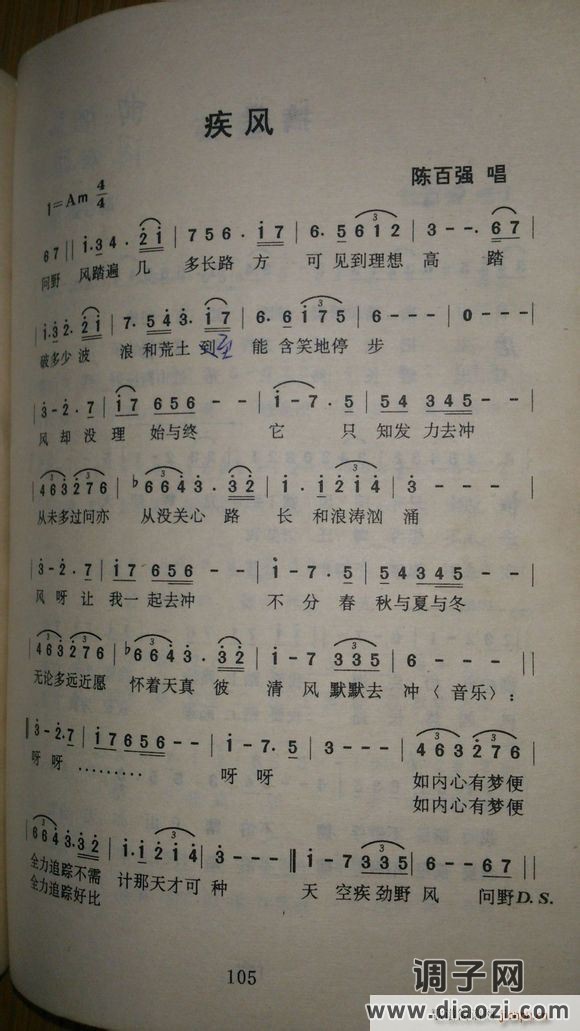 疾风
陈百强 唱
1=Am 4/4
6 7 || i. 3 4. 2 i | 7 5 6. i 7 | 6. 5 6 i 2 | 3 - - 6 7 |
问野 风踏遍 几 多长路 方 可 见到理想 高 踏
i. 3 2. 2 i | 7. 5 4 3. i 7 | 6. 6 i 7 5 | 6 - - - | 0 - - - |
破多少 波 浪 和荒土 到 能 含笑地停 步
3 - 2. 7 | i 7 6 5 6 - - | i - 7. 5 | 5 4 3 4 5 - - |
风 却 没 理 始与终 它 只 知发 力去冲
4 6 3 2 7 6 | b6 6 4 3. 3 2 | i. i 2 i 4 | 3 - - - |
从未多过问亦 从没关心 路 长 和浪涛汹 涌
3 - 2. 7 | i 7 6 5 6 - - | i - 7. 5 | 5 4 3 4 5 - - |
风 呀 让 我一起去冲 不 分 春 秋与夏与冬
4 6 3 2 7 6 | b6 6 4 3. 3 2 | i - 7 3 3 5 | 6 - - - ||
无论多远近愿 怀着天真 彼 清 风 默默去 冲（音乐）：
3 - 2. 7 | i 7 6 5 6 - - | i - 7. 5 | 3 - - - | 4 6 3 2 7 6 |
呀 呀 ········· 呀 呀 如内心有梦便
如内心有梦便
6 6 4 3. 3 2 | i. i 2 i 4 | 3 - - - || i - 7 3 3 5 | 6 - - 6 7 ||
全力追踪不需 计那天才可 种 天 空疾劲野 风 问野D.S.
全力追踪好比
105
调子网
www.diaozi.com